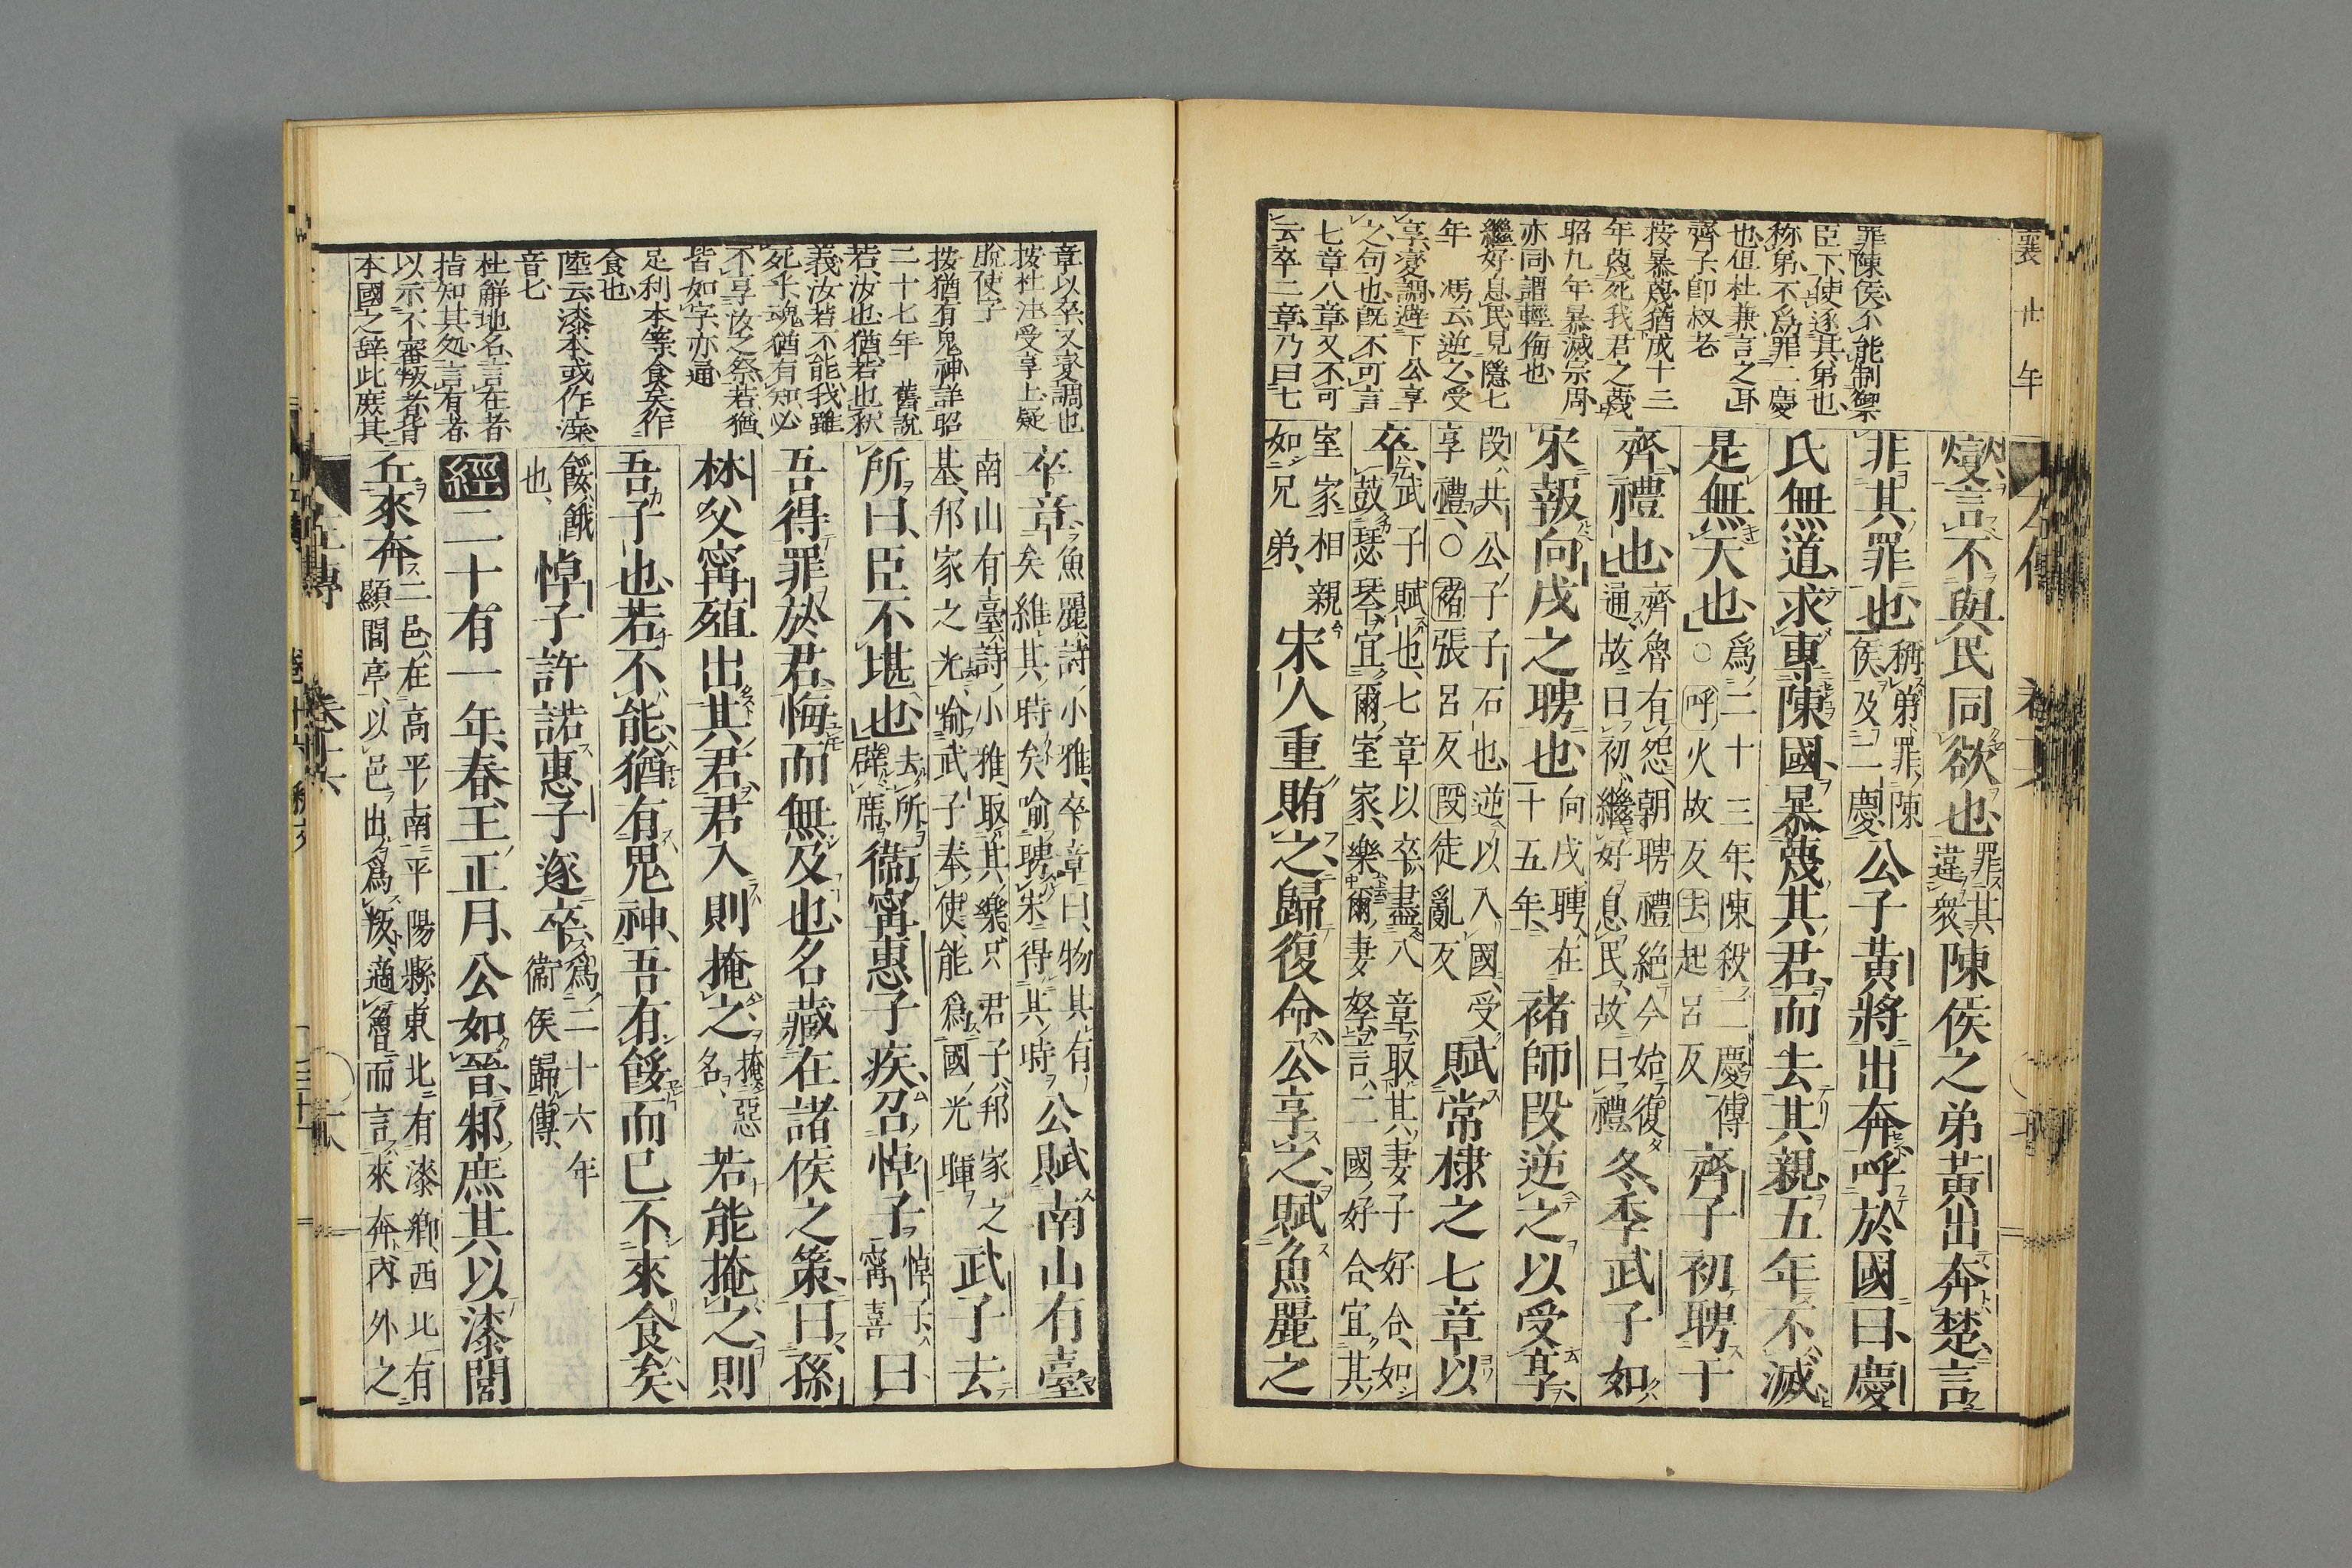 襄廿年
罪陳侯不能制禦
臣下使逐其弟也
称弟不爲罪二慶
也但杜兼言之耳
齊子即叔老
按暴蔑猶成十三
年蔑死我君之蔑
昭九年暴滅宗周
亦同謂輕侮也
繼好息民見隱七
年 馮云逆之受
享変調遊下公享
之句也既不可言
七章八章又不可
云卒二章乃曰七
燮言不與民同欲也罪其違衆陳侯之弟黃出奔楚言
非其罪也稱弟罪陳侯及二慶公子黃將出奔呼於國曰慶
氏無道求專陳國暴蔑其君而去其親五年不滅
是無天也爲二十三年陳殺二慶傳○呼火故反去起呂反齊子初聘于
齊禮也齊魯有怨朝聘禮絕今始復通故曰初繼好息民故曰禮冬季武子如
宋報向戌之聘也向戌聘在十五年褚師段逆之以受享
段共公子子石也逆以入國受享禮○褚張呂反段徒亂反賦常棣之七章以
卒武子賦也七章以卒盡八章取其妻子好合如鼓瑟琴宜爾室家樂爾妻帑言二國好合宜其
室家相親如兄弟宋人重賄之歸復命公享之賦魚麗之
章以卒又変調也
按杜注受享上疑
脫使字
按猶有鬼神詳昭
二十七年 舊說
若汝也猶若也釈
義汝若不能我雖
死乎魂猶有知必
不享汝之祭若猶
皆如字亦通
足利本等食矣作
食也
陸云漆本或作淶
音七
杜解地名言在者
指知其処言有者
以示不審叛者背
本國之辞此廐其
卒章魚麗詩小雅卒章曰物其有矣維其時矣喻聘宋得其時公賦南山有臺
南山有臺詩小雅取其樂只君子邦家之基邦家之光喻武子奉使能爲國光暉武子去
所曰臣不堪也去所辟席衞甯惠子疾召悼子悼子甯喜曰
吾得罪於君悔而無及也名藏在諸侯之策曰孫
林父甯殖出其君君入則掩之掩惡名若能掩之則
吾子也若不能猶有鬼神吾有餒而已不來食矣
餒餓也悼子許諾惠子遂卒爲二十六年衞侯歸傳
經二十有一年春王正月公如晉邾庶其以漆閭
丘來奔二邑在高平南平陽縣東北有漆鄉西北有顯閭亭以邑出爲叛適魯而言來奔內外之